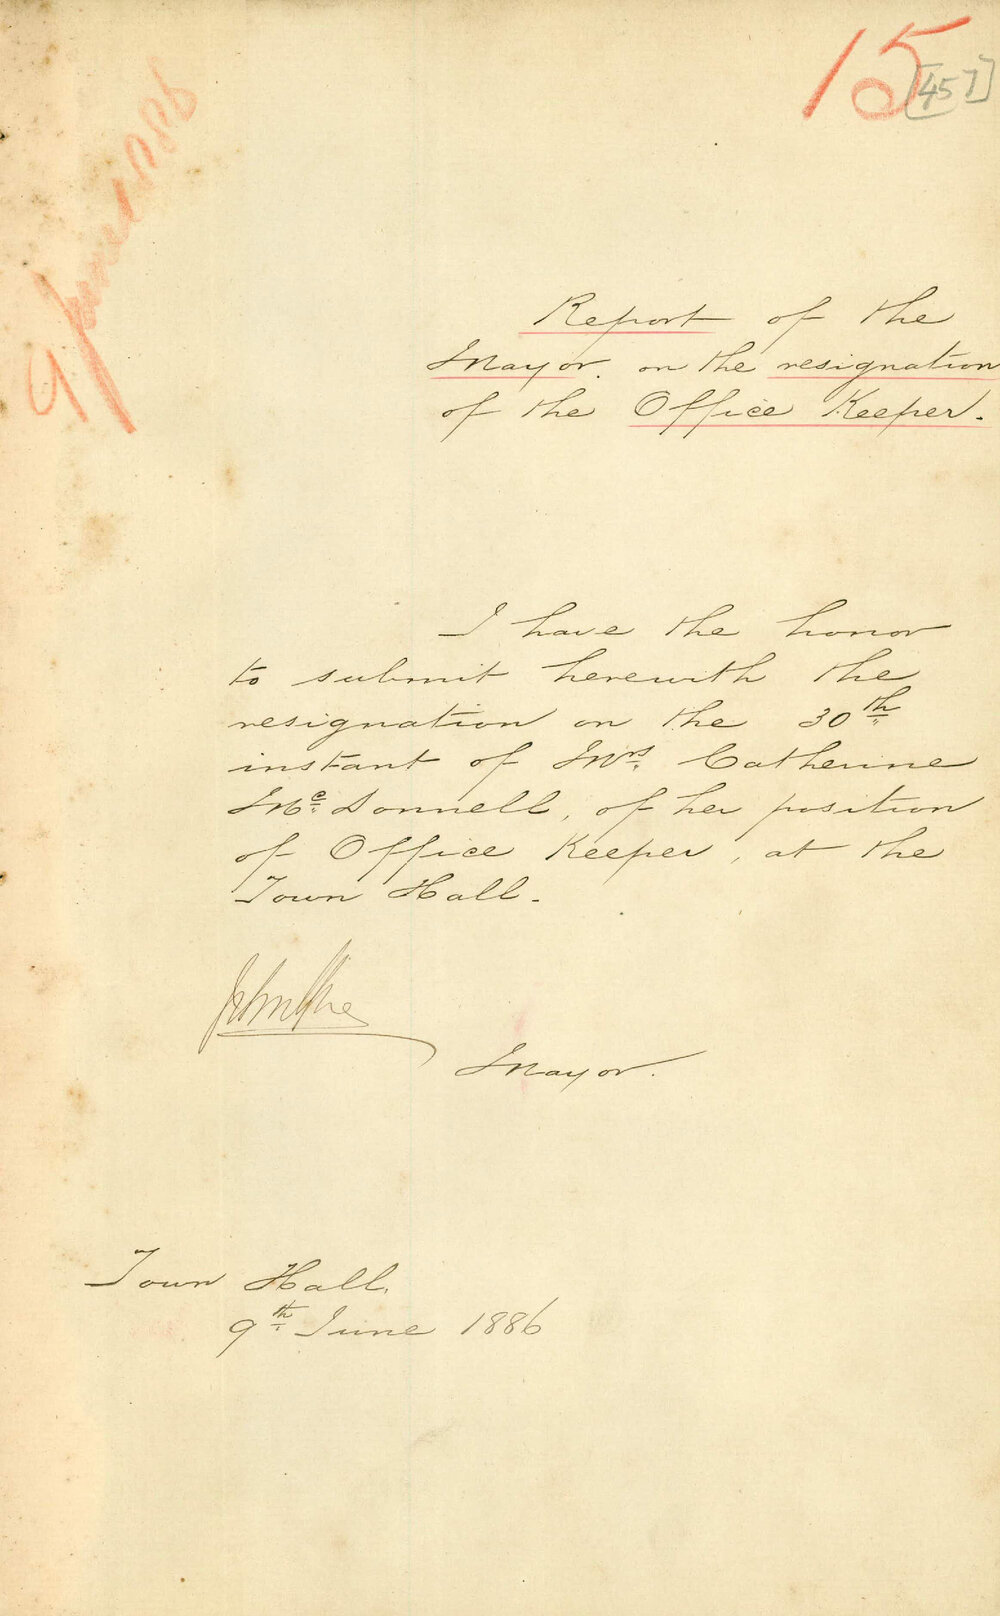 15
[457]
9 June 1886
Report of the
Mayor. on the resignation
of the Office Keeper.
I have the honor
to submit herewith the
resignation on the 30th
instant of Mrs. Catherine
Mc. Donnell, of her position
of Office Keeper, at the
Town Hall.
John
Mayor.
Town Hall,
9th June 1886